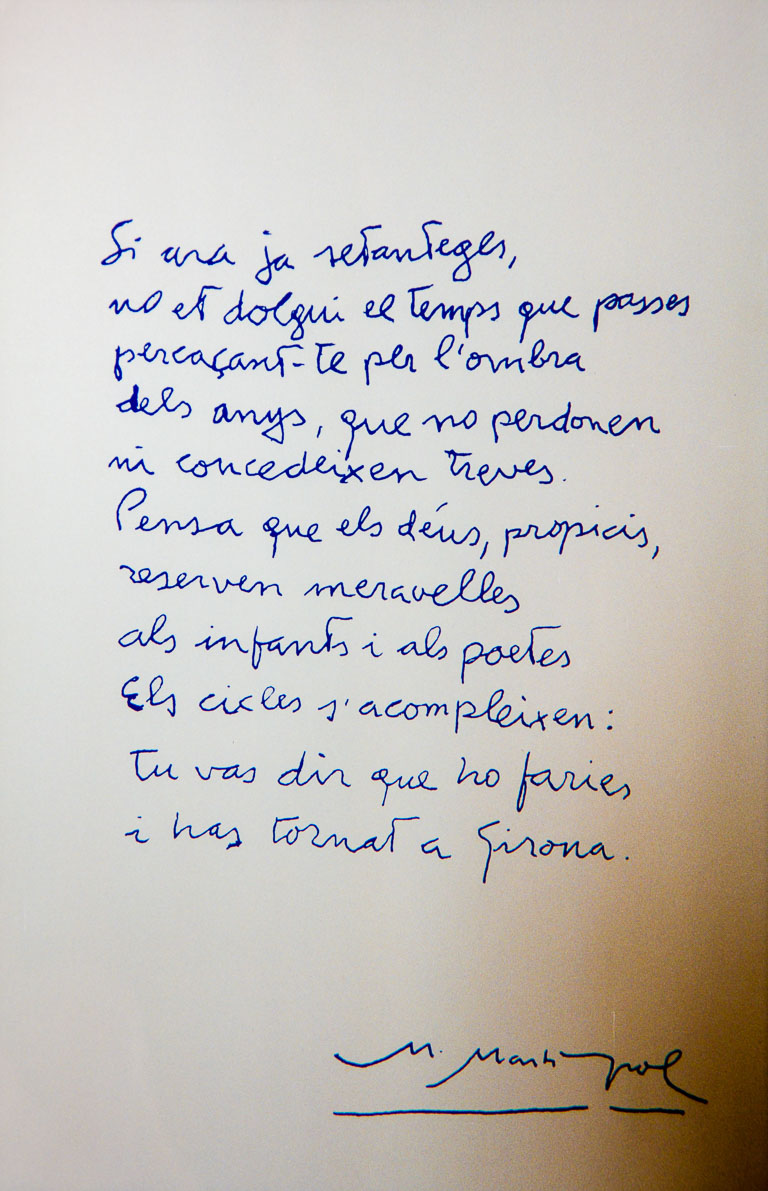 Si ara ja setanteges,
no et dolgui el temps que passes
percaçant-te per l'ombra
dels anys, que no perdonen
ni concedeixen treves.
Pensa que els déus, propicis,
reserven meravelles
als infants i als poetes
Els cicles s'acompleixen:
tu vas dir que ho faries
i has tornat a Girona.
M. Martí Pol